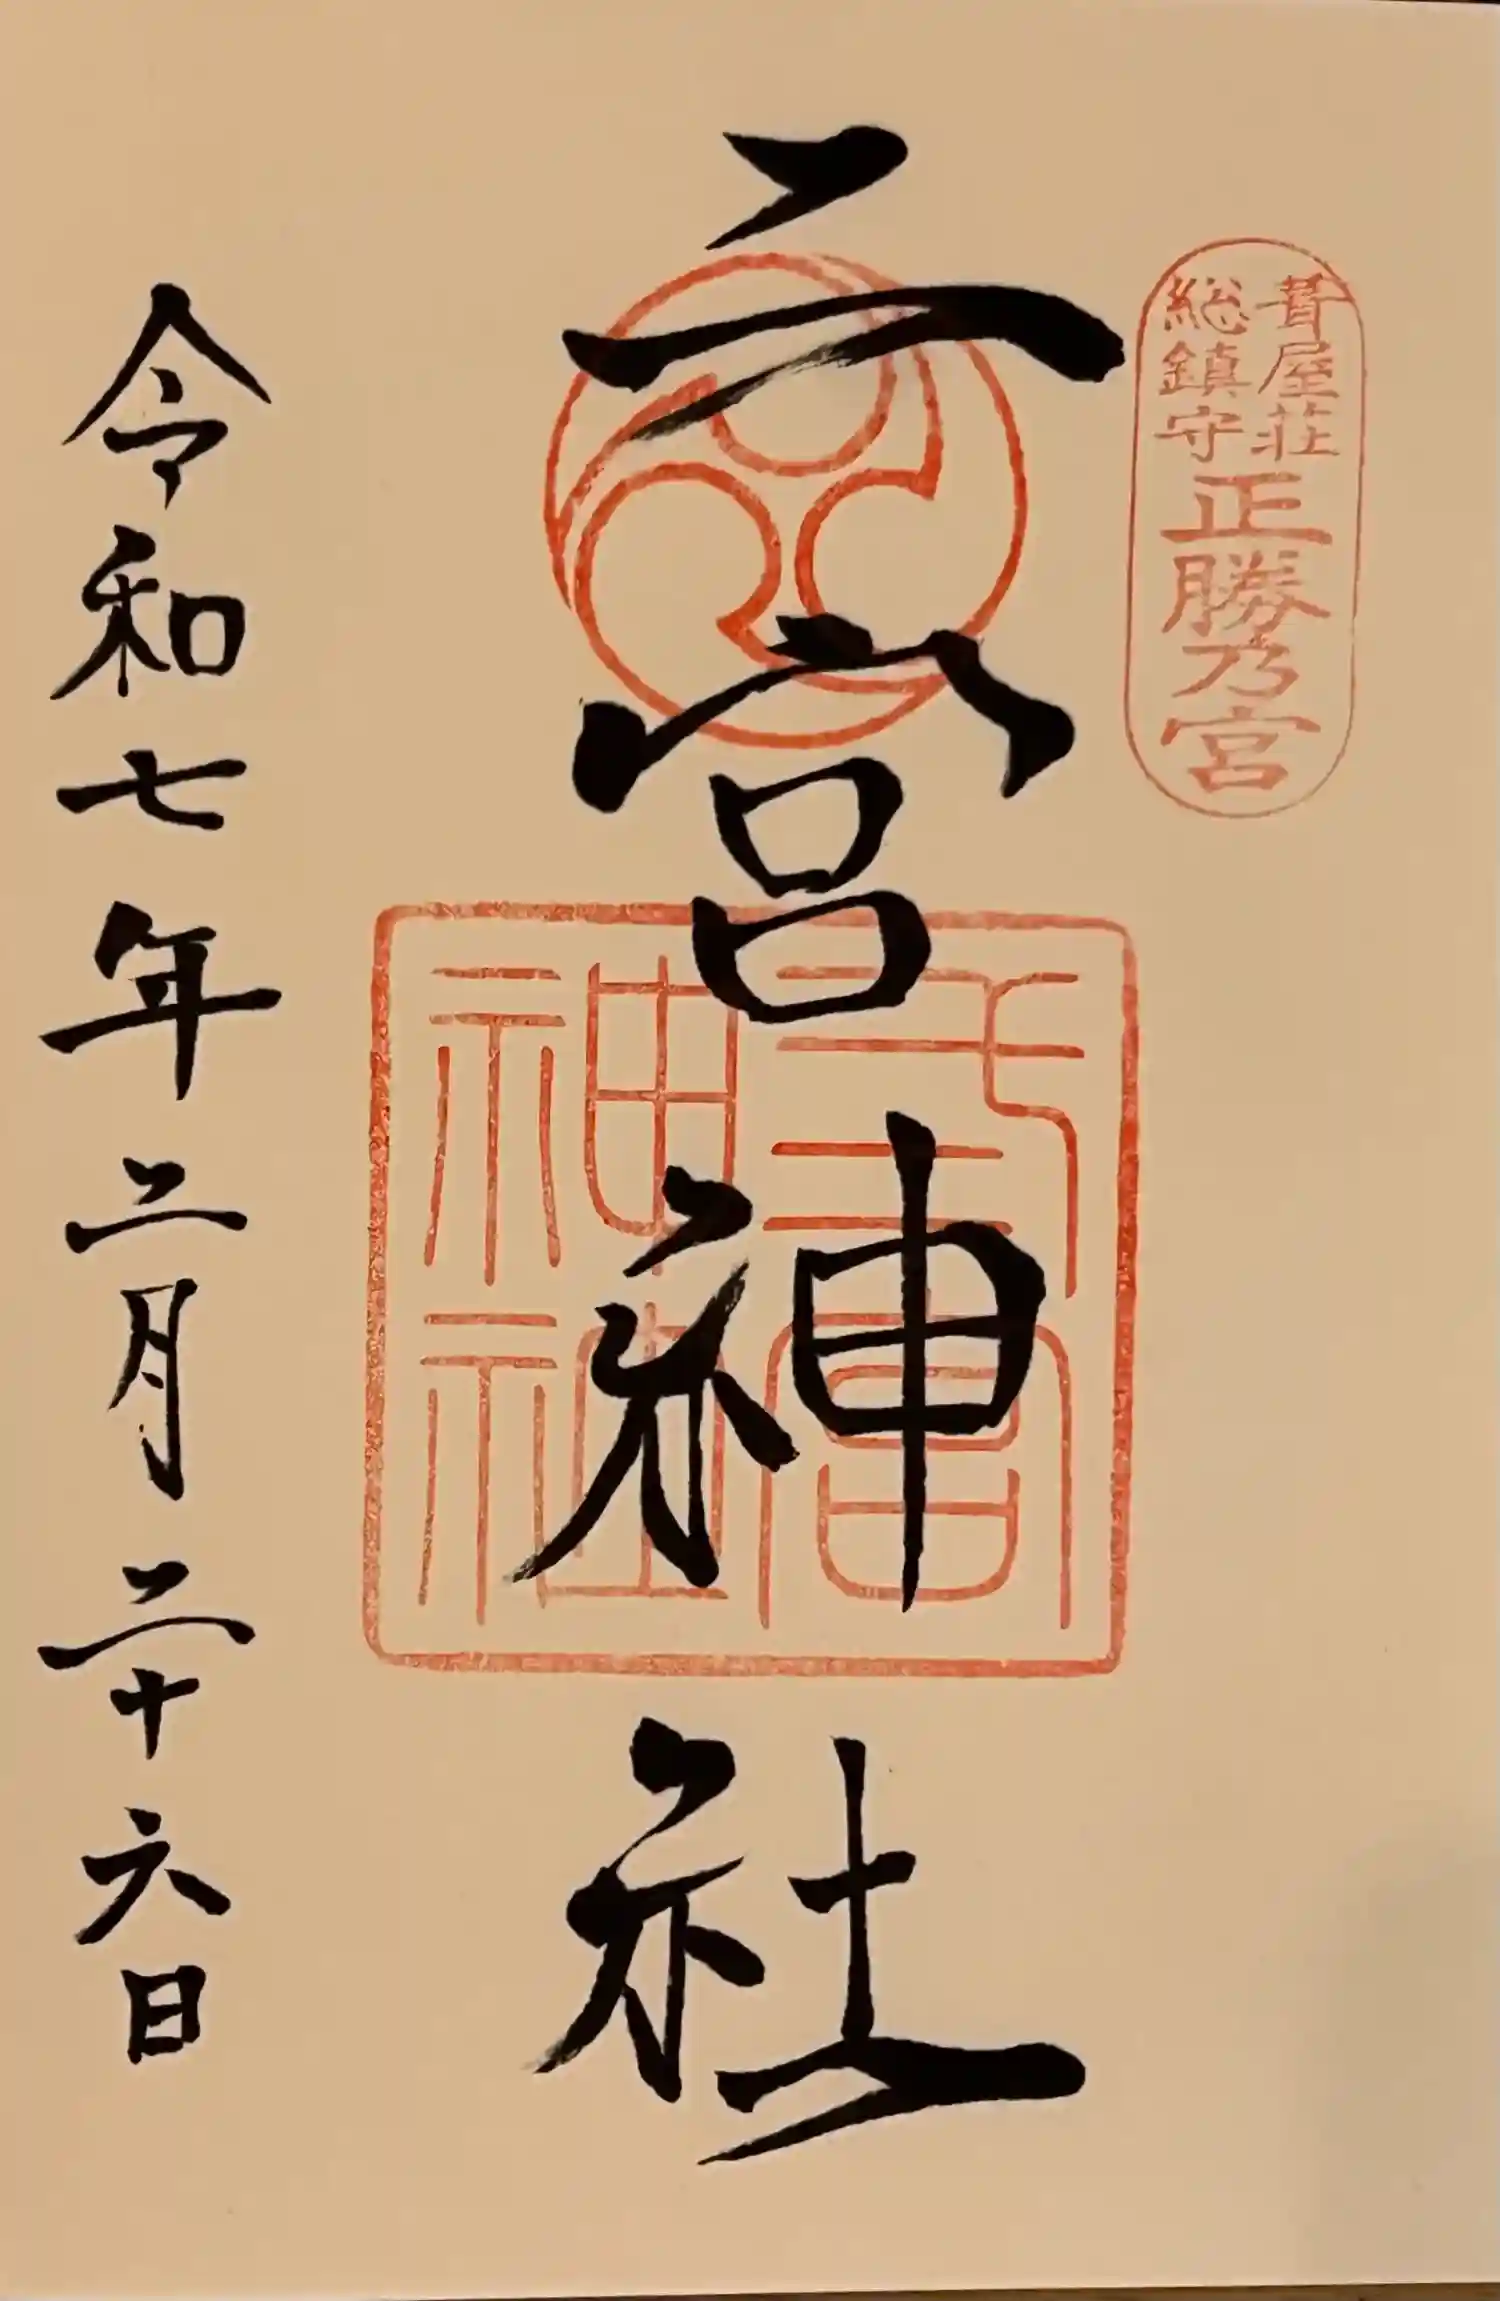 葺屋荘
総鎮守
正勝乃宮
二宮神社
弍宮
神社
令和七年二月二十六日